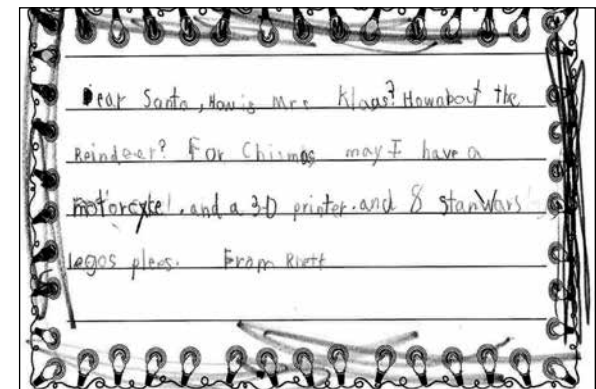 Dear Santa, How is Mrs Klaas? How about the
Reindeer? For Chismas may I have a
motorcykel. and a 3-D printer. and 8 stanWars
legos plees. From Rhett